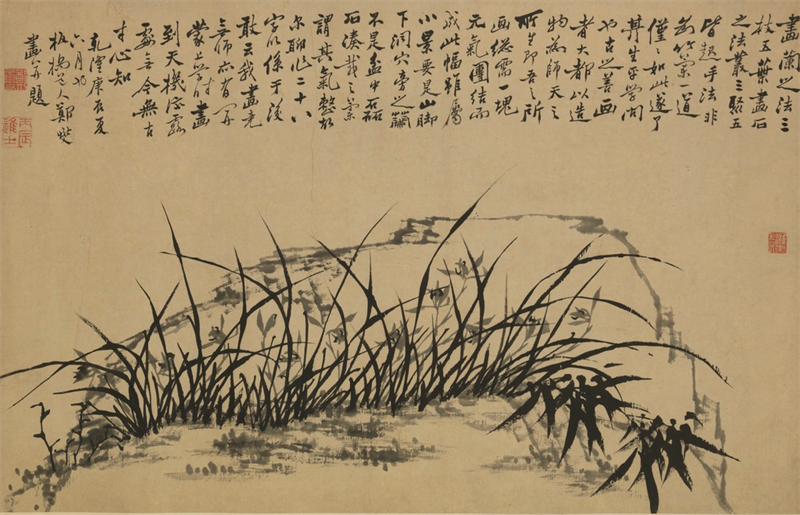 畫蘭之法三
枝五葉畫石
之法叢三聚五
皆起手法非
為竹蘭一道
僅〻如此遂了
其生平學問
也古之善画
者大都以造
物為師天之
所生即吾之所
画總需一塊
元氣團結而
成此幅雖屬
小景要是山脚
下洞穴旁之蘭
不是盆中磊
石凑栽之蘭
謂其氣整故
尔聊作二十八
字以係于後
敢云我畫竟
無師亦有開
蒙上學时畫
到天機流露
處無今無古
寸心知
乾隆庚辰夏
六月
板橋道人鄭燮
畫并題